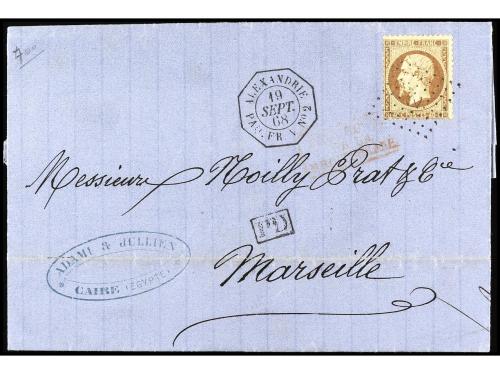 EMPIRE FRANC.
ALEXANDRIE
19
SEPT.
68
PAQ. FR. V No 2
Messieurs Noilly Prat & Cie
P.D.
Marseille
ADAMI & JULLIEN
CAIRE (EGYPTE)